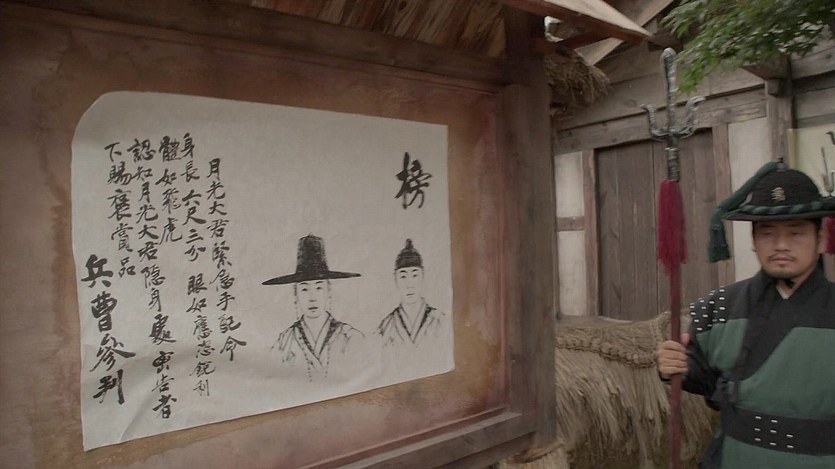 榜
月光大君緊急手配令
身長 六尺三分 眼如鷹 銳利
體如飛虎
認知月光大君隐身處 告者
下賜褒賞品
兵曹參判